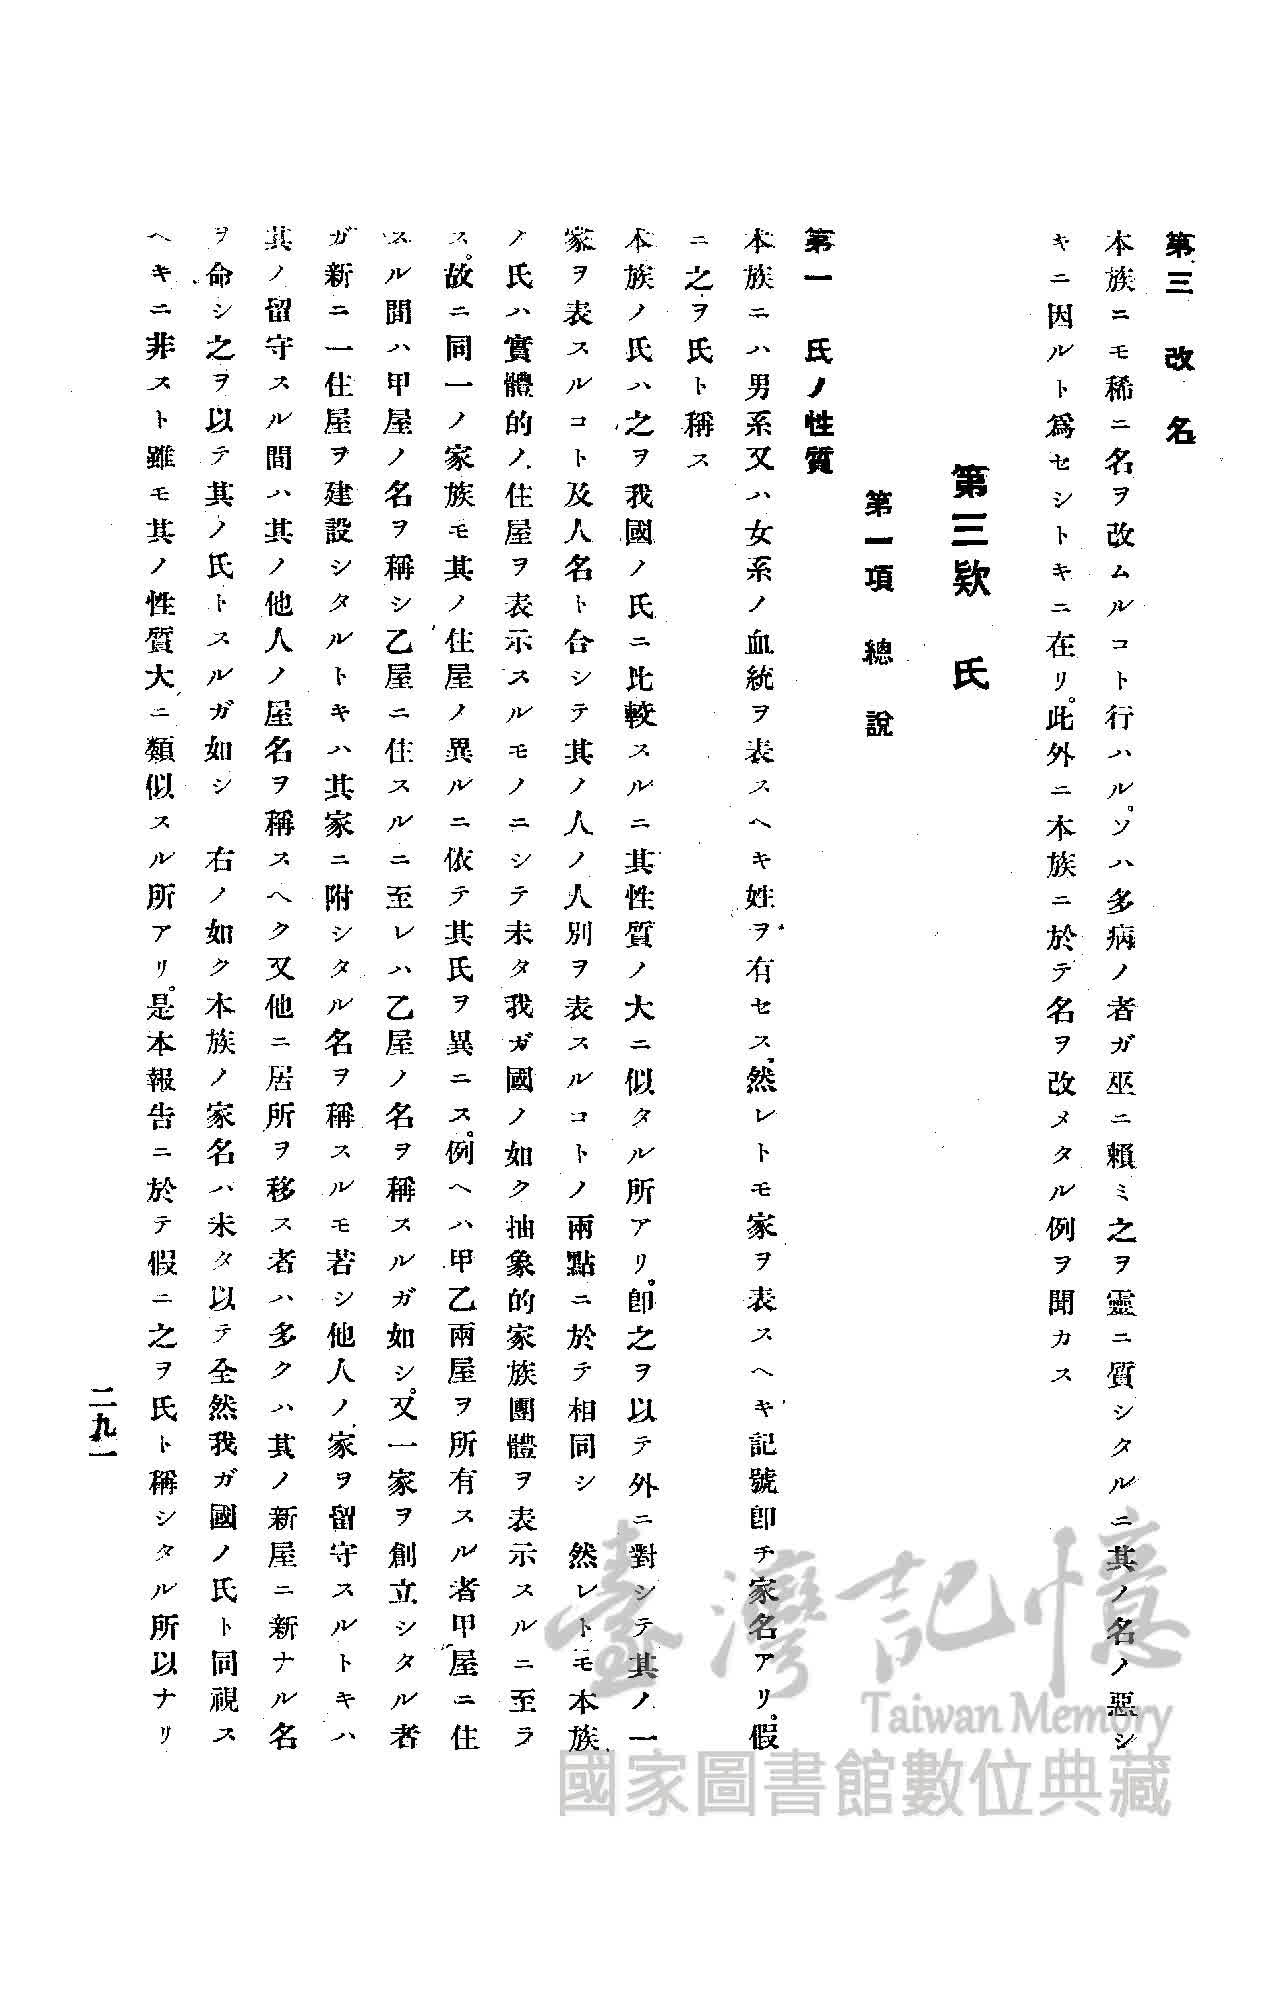 第三　改　名
本族ニモ稀ニ名ヲ改ムルコト行ハル。ソハ多病ノ者ガ巫ニ賴ミ之ヲ靈ニ質シタルニ其ノ名ノ惡シ
キニ因ルト爲セシトキニ在リ。此外ニ本族ニ於テ名ヲ改メタル例ヲ聞カス
第三款　氏
第一項　總　說
第一　氏ノ性質
本族ニハ男系又ハ女系ノ血統ヲ表スヘキ姓ヲ有セス、然レトモ家ヲ表スヘキ記號卽チ家名アリ。假
ニ之ヲ氏ト稱ス
本族ノ氏ハ之ヲ我國ノ氏ニ比較スルニ其性質ノ大ニ似タル所アリ。卽之ヲ以テ外ニ對シテ其ノ一
家ヲ表スルコト及人名ト合シテ其ノ人ノ人別ヲ表スルコトノ兩點ニ於テ相同シ　然レトモ本族
ノ氏ハ實體的ノ住屋ヲ表示スルモノニシテ未タ我ガ國ノ如ク抽象的家族團體ヲ表示スルニ至ラ
ス。故ニ同一ノ家族モ其ノ住屋ノ異ルニ依テ其氏ヲ異ニス。例ヘハ甲乙兩屋ヲ所有スル者甲屋ニ住
スル間ハ甲屋ノ名ヲ稱シ乙屋ニ住スルニ至レハ乙屋ノ名ヲ稱スルガ如シ。又一家ヲ創立シタル者
ガ新ニ一住屋ヲ建設シタルトキハ其家ニ附シタル名ヲ稱スルモ若シ他人ノ家ヲ留守スルトキハ
其ノ留守スル間ハ其ノ他人ノ屋名ヲ稱スヘク又他ニ居所ヲ移ス者ハ多クハ其ノ新屋ニ新ナル名
ヲ命シ之ヲ以テ其ノ氏トスルガ如シ　右ノ如ク本族ノ家名ハ未タ以テ全然我ガ國ノ氏ト同視ス
ヘキニ非スト雖モ其ノ性質大ニ類似スル所アリ。是本報告ニ於テ假ニ之ヲ氏ト稱シタル所以ナリ
二九一
臺灣記憶
Taiwan Memory
國家圖書館數位典藏